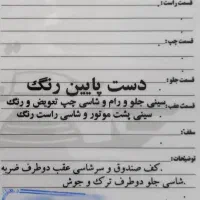 قسمت راست:
قسمت چپ:
قسمت جلو:
دست پایین رنگ
سینی جلو و رام و شاسی چپ تعویض و رنگ
قسمت عقب:
سینی پشت موتور و شاسی راست رنگ
سقف:
توضیحات:
کف صندوق و سرشاسی عقب دوطرف ضربه.
شاسی جلو دوطرف ترک و جوش.